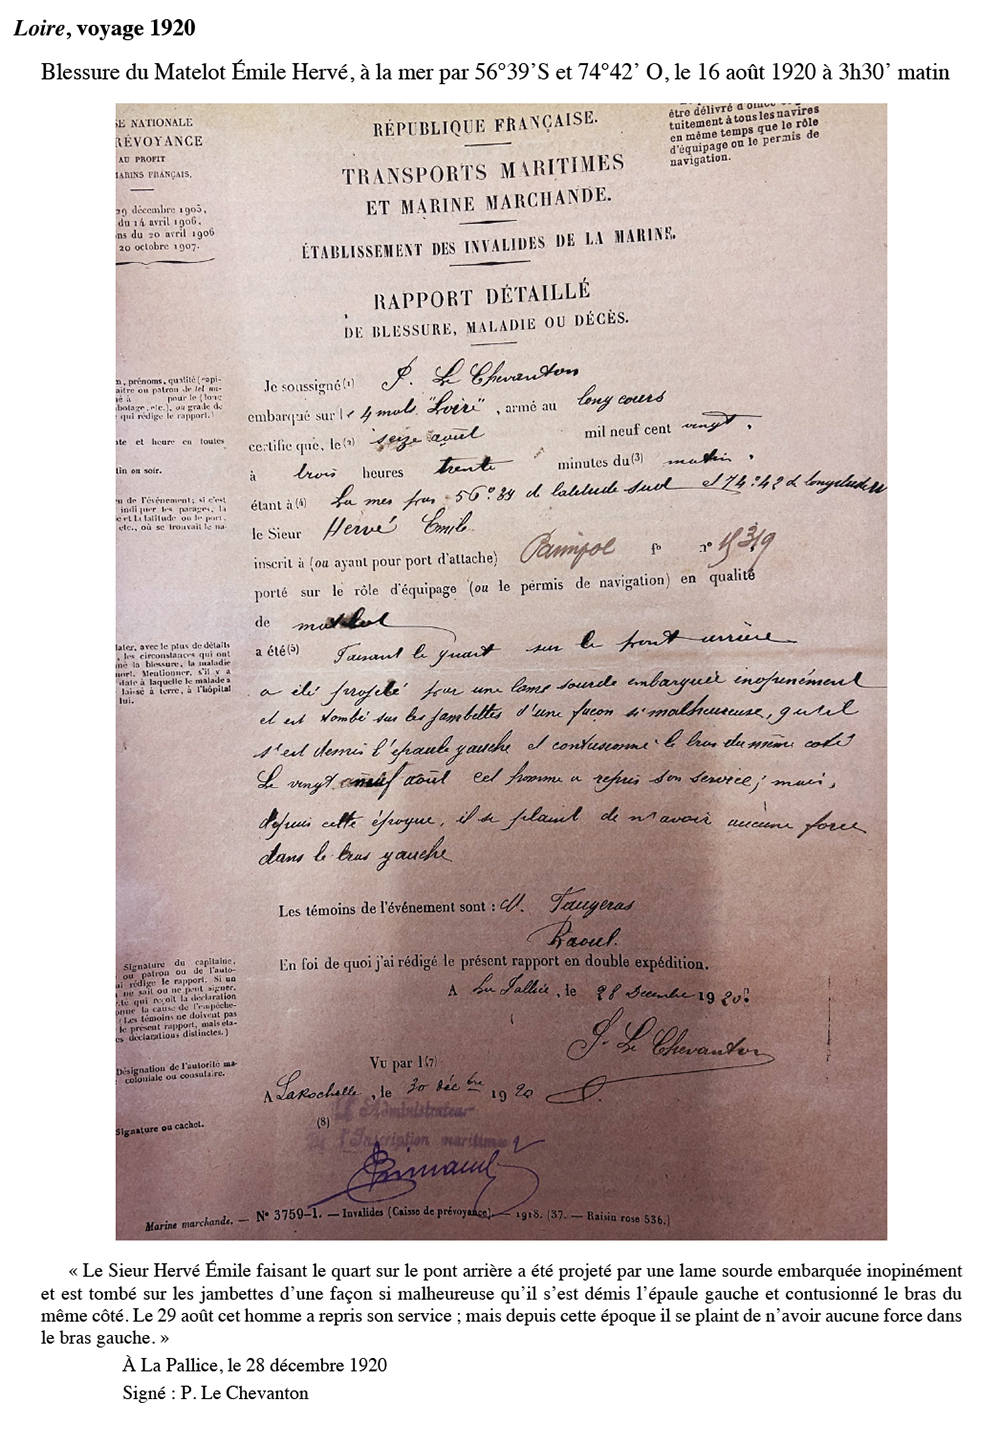 Loire, voyage 1920
Blessure du Matelot Émile Hervé, à la mer par 56°39’S et 74°42’ O, le 16 août 1920 à 3h30’ matin
SE NATIONALE
RÉVOYANCE
AU PROFIT
MARINS FRANÇAIS,
29 décembre 1905,
du 14 avril 1906,
ns du 20 avril 1906
20 octobre 1907.
RÉPUBLIQUE FRANÇAISE.
être délivré d'office
tuitement à tous les navires
en même temps que le rôle
d'équipage ou le permis de
navigation.
TRANSPORTS MARITIMES
ET MARINE MARCHANDE.
ÉTABLISSEMENT DES INVALIDES DE LA MARINE.
RAPPORT DÉTAILLÉ
DE BLESSURE, MALADIE OU DÉCÈS.
n, prénoms, qualité (capi-
aitre ou patron de tel na-
é à pour le (long
abotage, etc.), ou grade de
qui rédige le rapport.)
ate et heure en toutes
tin ou soir.
u de l'événement; si c'est
indiquer les parages, la
e et la latitude ou le port,
etc., où se trouvait le na-
Je soussigné (1) P. Le Chevanton
embarqué sur le 4 mâts "Loire", armé au long cours
certifie que, le (2) seize août mil neuf cent vingt,
à trois heures trente minutes du (3) matin,
étant à (4) La mer par 56° 39 de latitude sud et 74°42 de longitude W
le Sieur Hervé Emile
inscrit à (ou ayant pour port d'attache) Paimpol f° n° 15319
porté sur le rôle d'équipage (ou le permis de navigation) en qualité
de matelot
later, avec le plus de détails
, les circonstances qui ont
né la blessure, la maladie
mort. Mentionner, s'il y a
date à laquelle le malade a
laissé à terre, à l'hôpital
lui.
a été (5) Faisant le quart sur le pont arrière
a été projeté par une lame sourde embarquée inopinément
et est tombé sur les jambettes d'une façon si malheureuse, qu'il
s'est démis l'épaule gauche et contusionné le bras du même coté
Le vingt neuf août cet homme a repris son service; mais,
depuis cette époque, il se plaint de n'avoir aucune force
dans le bras gauche
Les témoins de l'événement sont : M. Faugeras
Raoul.
En foi de quoi j'ai rédigé le présent rapport en double expédition.
A La Pallice, le 28 Decembre 1920
Signature du capitaine,
ou patron ou de l'auto-
ui rédige le rapport. Si un
ne sait ou ne peut signer,
te qui reçoit la déclaration
onne la cause de l'empêche-
(Les témoins ne doivent pas
le présent rapport, mais éta-
es déclarations distinctes.)
P. Le Chevanton
Vu par l (7)
Désignation de l'autorité ma-
coloniale ou consulaire.
A La Rochelle, le 30 décbre 1920
(8)
L'Administrateur
de l'Inscription maritime
Signature ou cachet.
Marine marchande. — N° 3759-1. — Invalides (Caisse de prévoyance). — 1918. (37. — Raisin rose 536.)
« Le Sieur Hervé Émile faisant le quart sur le pont arrière a été projeté par une lame sourde embarquée inopinément
et est tombé sur les jambettes d’une façon si malheureuse qu’il s’est démis l’épaule gauche et contusionné le bras du
même côté. Le 29 août cet homme a repris son service ; mais depuis cette époque il se plaint de n’avoir aucune force dans
le bras gauche. »
À La Pallice, le 28 décembre 1920
Signé : P. Le Chevanton